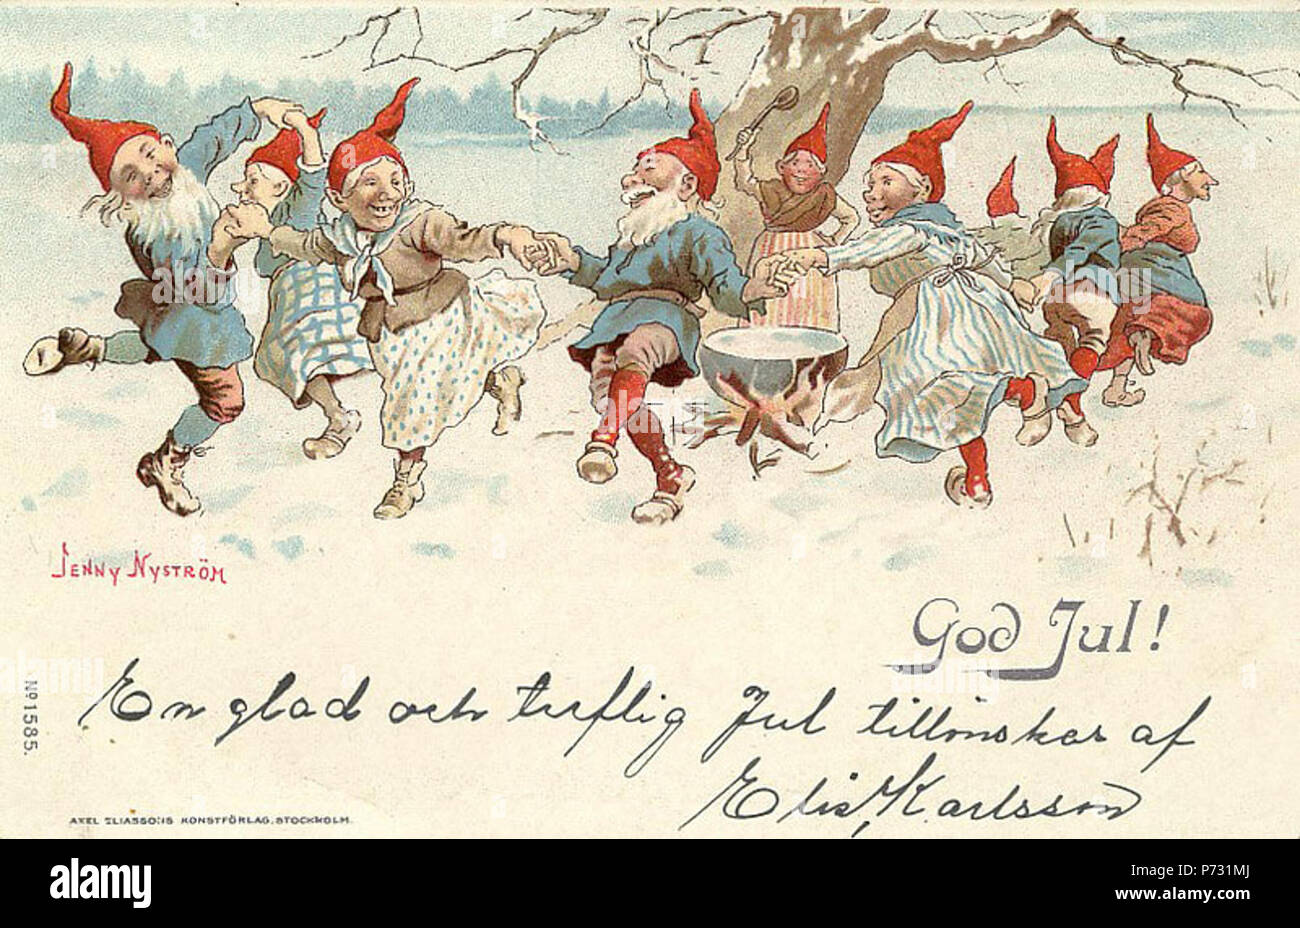 JENNY NYSTRÖM
God Jul!
En glad och treflig Jul tillönskas af
Elis Karlsson
Nº 1585.
AXEL ELIASSONS KONSTFÖRLAG. STOCKHOLM.
a
alamy
alamy stock photo
P731MJ
www.alamy.com